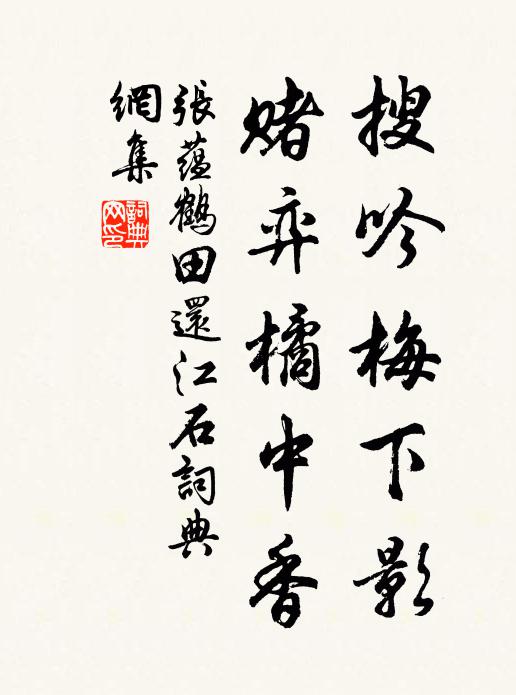 搜吟梅下影
賭弈橘中香
張蘊鶴田還江石詞典
網集
詞典網印